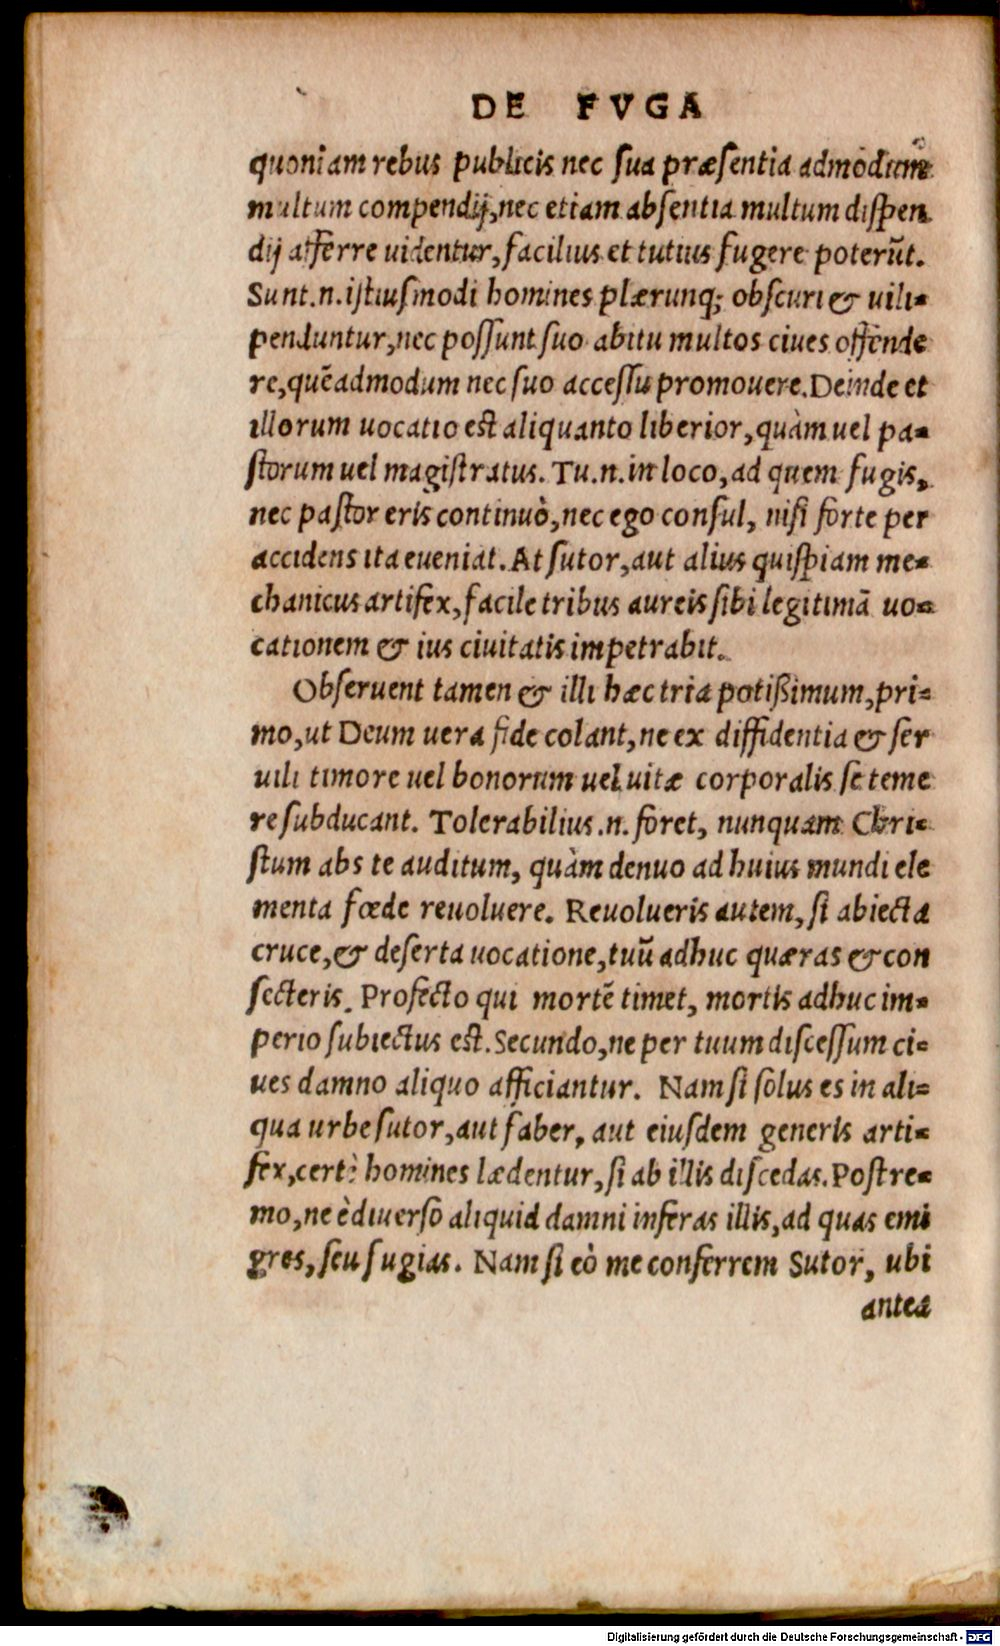 DE FVGA
quoniam rebus publicis nec sua præsentia admodum
multum compendij, nec etiam absentia multum dispen
dij afferre uidentur, facilius et tutius fugere poterūt.
Sunt.n.istiusmodi homines plærunq; obscuri & uili-
penduntur, nec possunt suo abitu multos ciues offende
re, quēadmodum nec suo accessu promouere. Deinde et
illorum uocatio est aliquanto liberior, quàm uel pa-
storum uel magistratus. Tu.n.in loco, ad quem fugis,
nec pastor eris continuò, nec ego consul, nisi forte per
accidens ita eueniat. At sutor, aut alius quispiam me-
chanicus artifex, facile tribus aureis sibi legitimā uo-
cationem & ius ciuitatis impetrabit.
Obseruent tamen & illi hæc tria potißimum, pri-
mo, ut Deum uera fide colant, ne ex diffidentia & ser
uili timore uel bonorum uel uitæ corporalis se teme
re subducant. Tolerabilius.n. foret, nunquam Chri-
stum abs te auditum, quàm denuo ad huius mundi ele
menta fœde reuoluere. Reuolueris autem, si abiecta
cruce, & deserta uocatione, tuū adhuc quæras & con
secteris. Profecto qui mortē timet, mortis adhuc im-
perio subiectus est. Secundo, ne per tuum discessum ci-
ues damno aliquo afficiantur. Nam si solus es in ali-
qua urbe sutor, aut faber, aut eiusdem generis arti-
fex, certè homines lædentur, si ab illis discedas. Postre-
mo, ne è diuerso aliquid damni inferas illis, ad quas emi
gres, seu fugias. Nam si eò me conferrem Sutor, ubi
antea
Digitalisierung gefördert durch die Deutsche Forschungsgemeinschaft - DFG